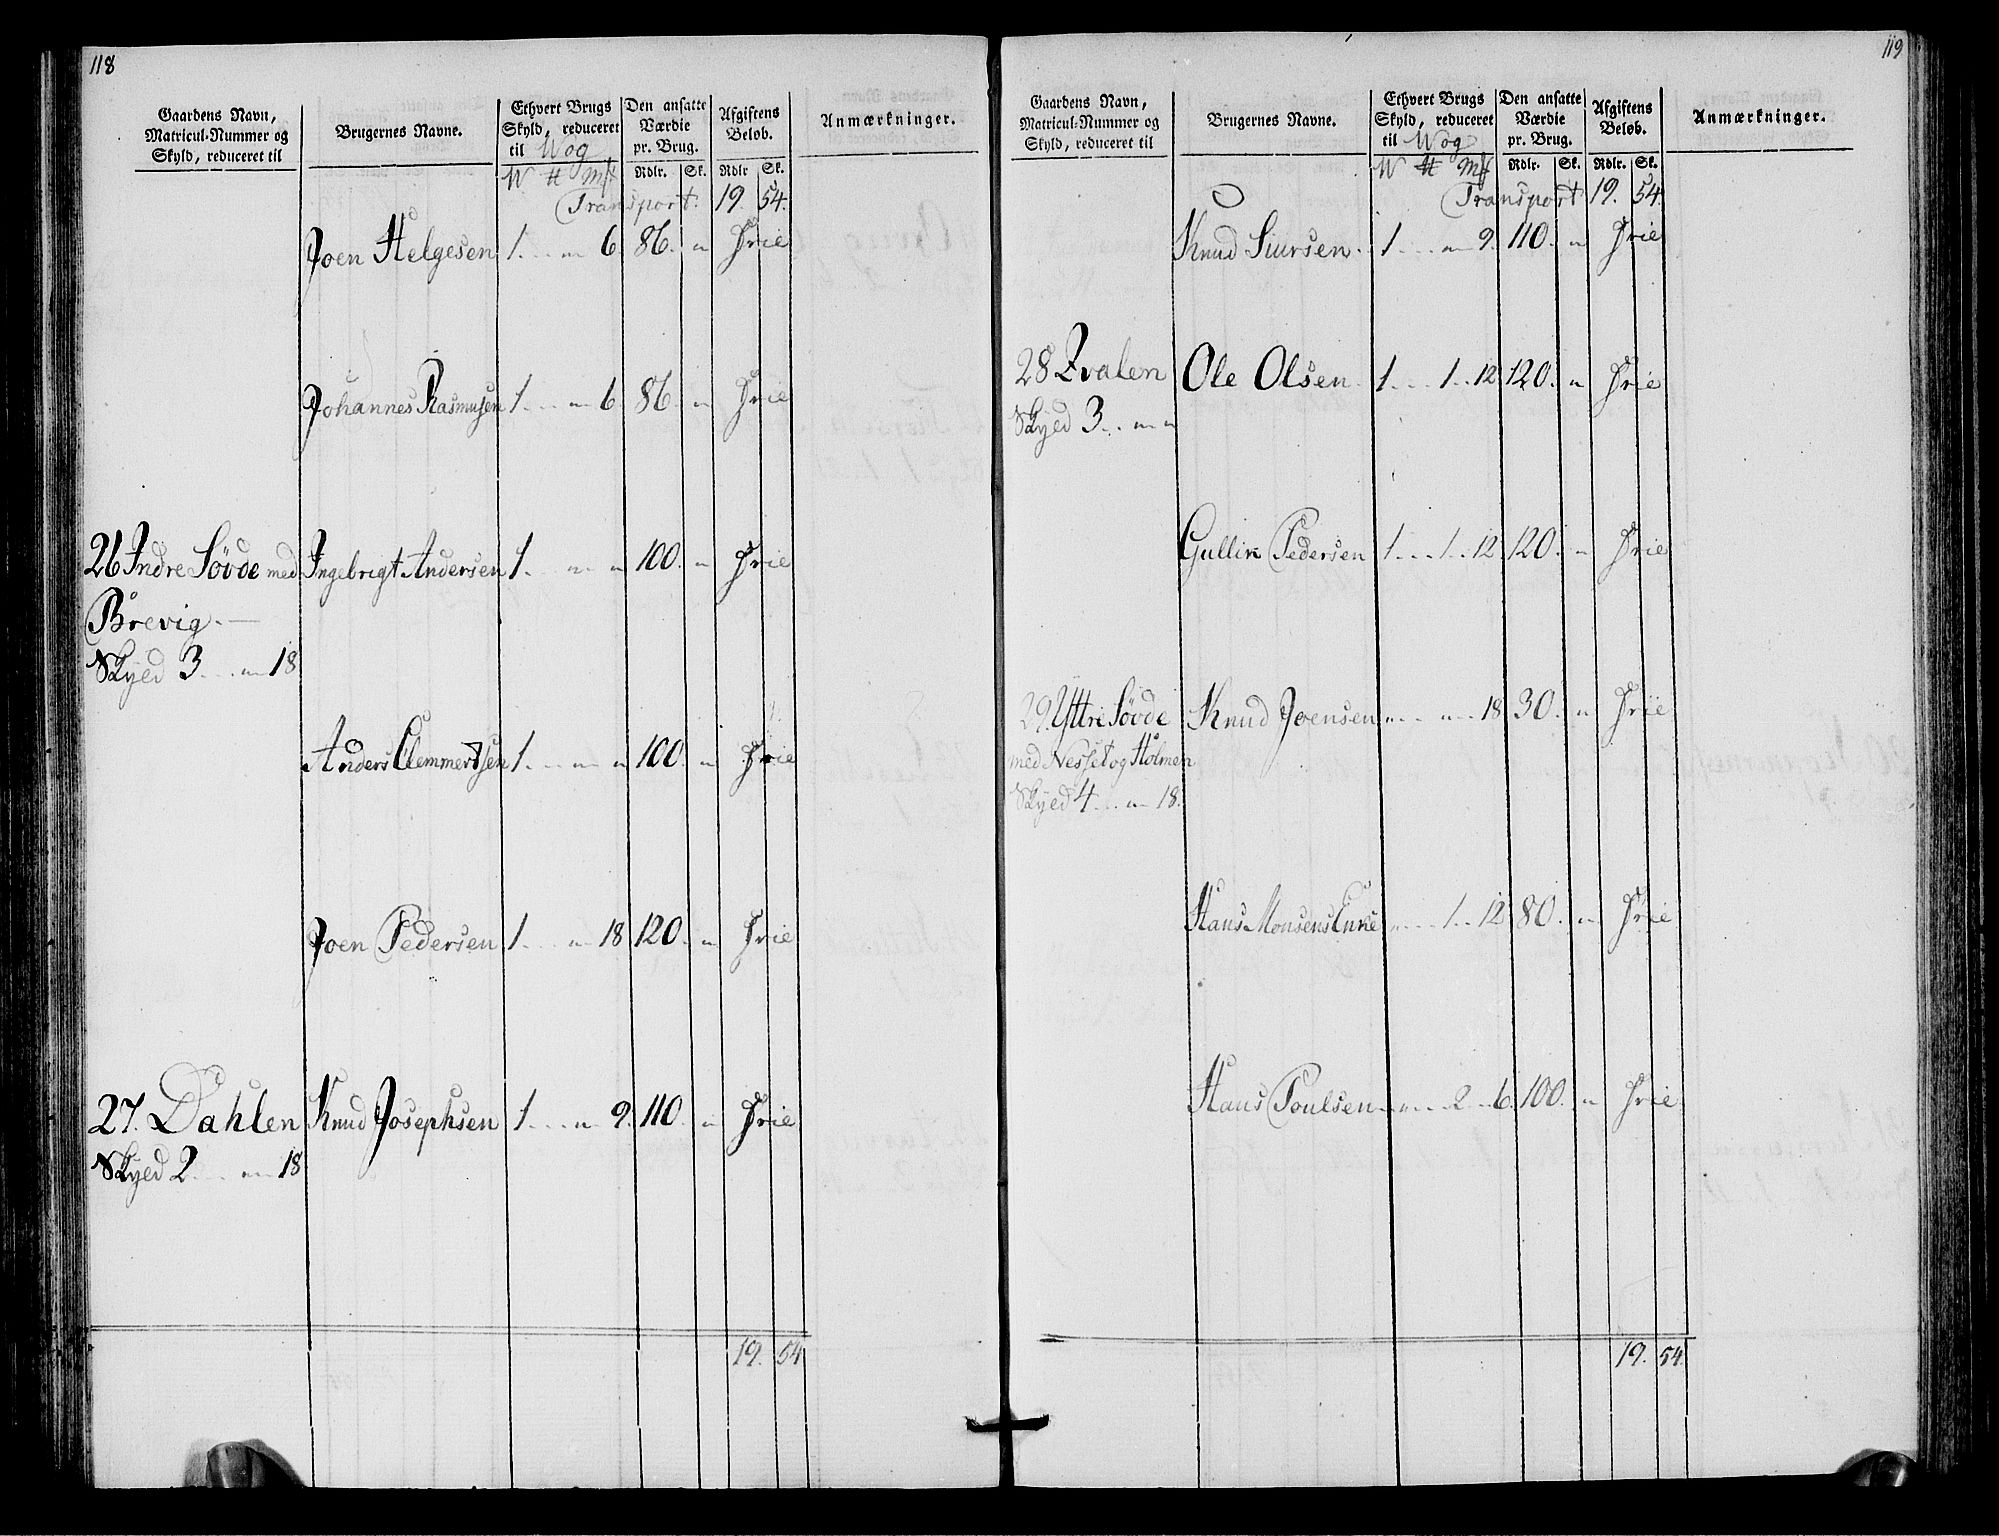 118
Gaardens Navn, Matricul-Nummer og Skyld, reduceret til | Brugernes Navne. | Ethvert Brugs Skyld, reduceret til Wog | Den ansatte Værdie pr. Brug. | Afgiftens Beløb. | Anmærkninger.
W ℔ Mk | Rdlr. Sk. | Rdlr Sk.
Transport. 19. 54.
Joen Helgesen 1. . . „ 6. 86. „ Frie
Johannes Rasmusen 1. . . „ 6. 86. „ Frie
26 Indre Søvde med Ingebrigt Andersen 1. . . „ „ 100. „ Frie
Brevig. —
Skyed 3. . . „ 18
Anders Clemmertsen 1. . . „ „ 100. „ Frie
Joen Pedersen 1. . . „ 18 120. „ Frie
27. Dahlen Knud Josephsen 1. . . „ 9. 110. „ Frie
Skyed 2. . . „ 18
19. 54
119
Gaardens Navn, Matricul-Nummer og Skyld, reduceret til | Brugernes Navne. | Ethvert Brugs Skyld, reduceret til Wog | Den ansatte Værdie pr. Brug. | Afgiftens Beløb. | Anmærkninger.
W ℔ Mk | Rdlr. Sk. | Rdlr. Sk.
Transport 19. 54.
Knud Siursen. 1. . . „ 9. 110. „ Frie
28 Qvalen Ole Olsen. 1. . . 1. . 12 120. „ Frie
Skyed 3. . . „ „
Gullik Pedersen 1. . . 1. . 12 120. „ Frie
29. Yttre Søvde Knud Joensen „ . . „ . . 18 30. „ Frie
med Nesset og Holmen
Skyed 4. . . „ 18.
Hans Monsens Enke „ . . 1. . 12 80. „ Frie
Hans Poulsen „ . . 2. . 6. 100. „ Frie
19. 54.